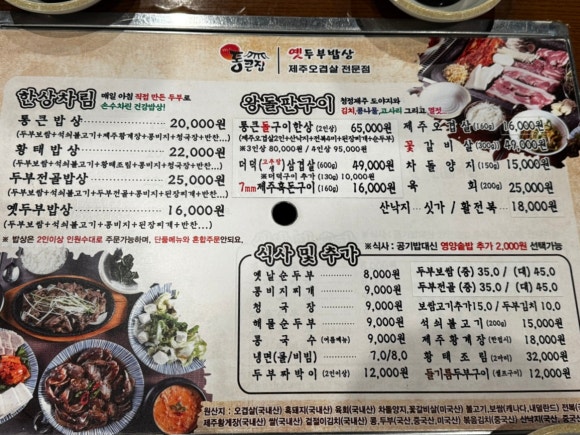 통큰집
옛두부밥상
제주오겹살 전문점
한상차림
매일 아침 직접 만든 두부로
손수차린 건강밥상!
통큰밥상 20,000원
(두부보쌈+석쇠불고기+제주황게장+콩비지+청국장+반찬...)
황태밥상 22,000원
(두부보쌈+석쇠불고기+황태조림+콩비지+된장찌개+반찬...)
두부전골밥상 25,000원
(두부보쌈+석쇠불고기+두부전골+콩비지+된장찌개+반찬...)
옛두부밥상 16,000원
(두부보쌈+석쇠불고기+콩비지+된장찌개+반찬...)
※ 밥상은 2인이상 인원수대로 주문가능하며, 단품메뉴와 혼합주문안되요.
왕돌판구이
청정제주 도야지와
김치,콩나물,고사리 그리고 멜젓
통큰돌구이한상(2인상) 65,000원
(제주오겹살2인+산낙지+전복4미+된장찌개+순두부)
※3인상 80,000원 / 4인상 95,000원
더덕삼겹살 (600g) 49,000원
※더덕구이 추가 (130g) 10,000원
7mm제주흑돈구이 (160g) 16,000원
제주오겹살 (160g) 16,000원
꽃갈비살 (300g) 49,000원
차돌양지 (150g) 15,000원
육회 (200g) 25,000원
산낙지 싯가 / 활전복 18,000원
식사 및 추가
※식사 : 공기밥대신 영양솥밥 추가 2,000원 선택가능
옛날순두부 8,000원
콩비지찌개 9,000원
청국장 9,000원
해물순두부 9,000원
콩국수 (여름메뉴) 9,000원
냉면(물/비빔) 7.0/8.0
두부짜박이 (2인이상) 12,000원
두부보쌈 (중) 35.0 / (대) 45.0
두부전골 (중) 35.0 / (대) 45.0
보쌈고기추가15.0 / 두부김치 10.0
석쇠불고기 (200g) 15,000원
제주황게장 (한접시) 18,000원
황태조림 (2마리) 32,000원
들기름두부구이 (셀프구이) 12,000원
원산지 : 오겹살(국내산) 흑돼지(국내산) 육회(국내산) 차돌양지,꽃갈비살(미국산) 불고기,보쌈(캐나다,네덜란드) 전복(국
제주황게장(국내산) 쌀(국내산) 겉절이김치(국내산) 콩,두부(국산,중국산,미국산) 볶음김치(중국산) 산낙지(국산, 중국산